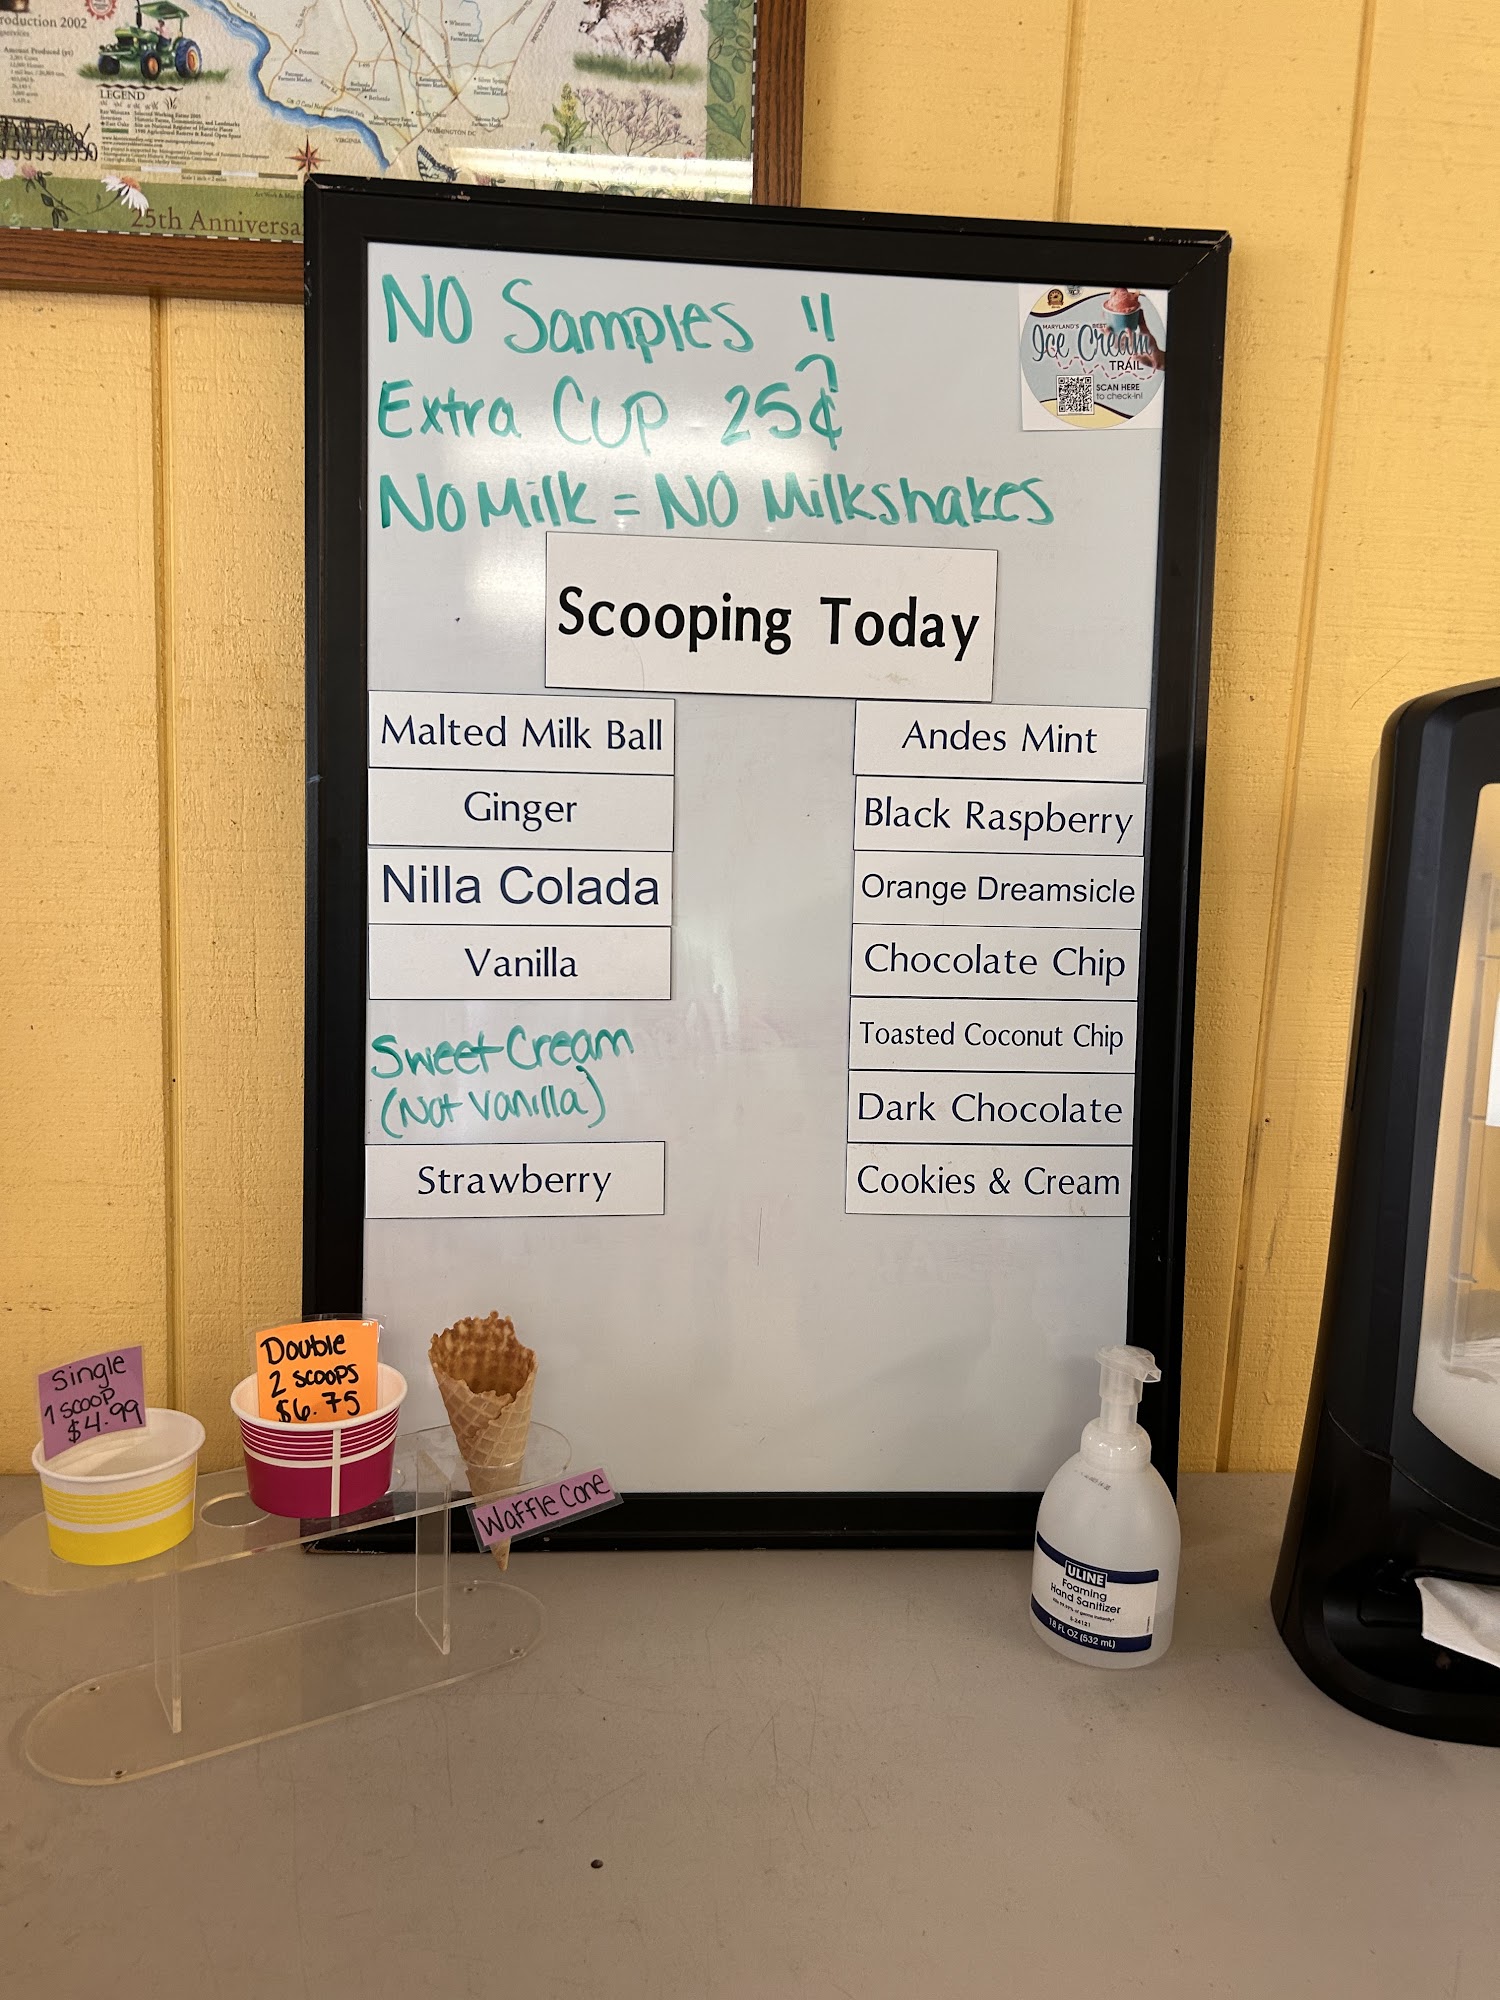 roduction 2002
Amount Produced (yr)
LEGEND
VIRGINIA
WASHINGTON DC
25th Anniversa
NO Samples !!
Extra Cup 25¢
No Milk = NO Milkshakes
MARYLAND'S BEST
Ice Cream
TRAIL
SCAN HERE
to check-in!
Scooping Today
Malted Milk Ball
Ginger
Nilla Colada
Vanilla
Sweet Cream
(Not Vanilla)
Strawberry
Andes Mint
Black Raspberry
Orange Dreamsicle
Chocolate Chip
Toasted Coconut Chip
Dark Chocolate
Cookies & Cream
Single
1 scoop
$4.99
Double
2 scoops
$6.75
Waffle Cone
ULINE
Foaming
Hand Sanitizer
S-24121
18 FL OZ (532 mL)